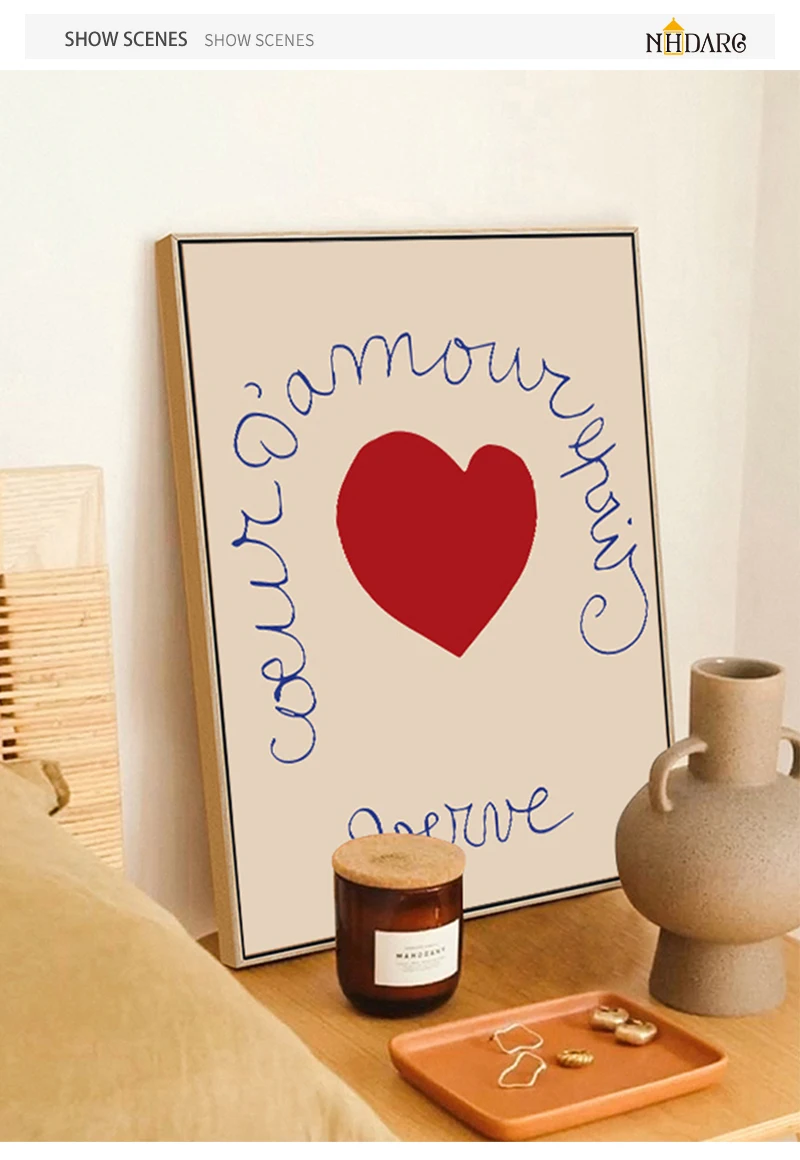 SHOW SCENES SHOW SCENES
NHDARG
cœur D'amour
verve
MAHOGANY